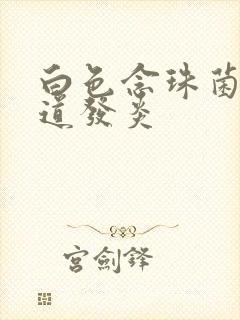 白色念珠菌
道發炎
宮劍鋒